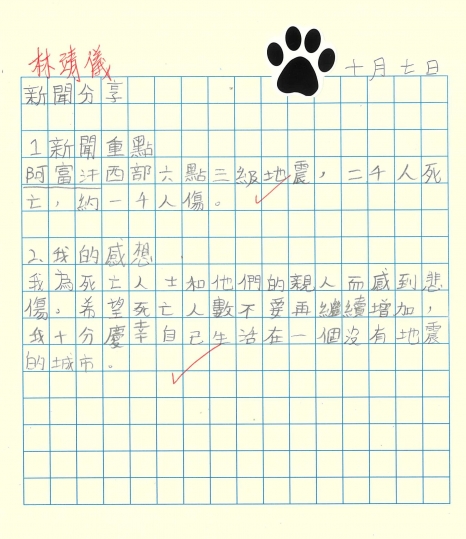 林靖儀
十月七日
新聞分享
1 新聞重點
阿富汗西部六點三級地震，二千人死
亡，約一千人傷。
2. 我的感想
我為死亡人士和他們的親人而感到悲
傷。希望死亡人數不要再繼續增加，
我十分慶幸自己生活在一個沒有地震
的城市。